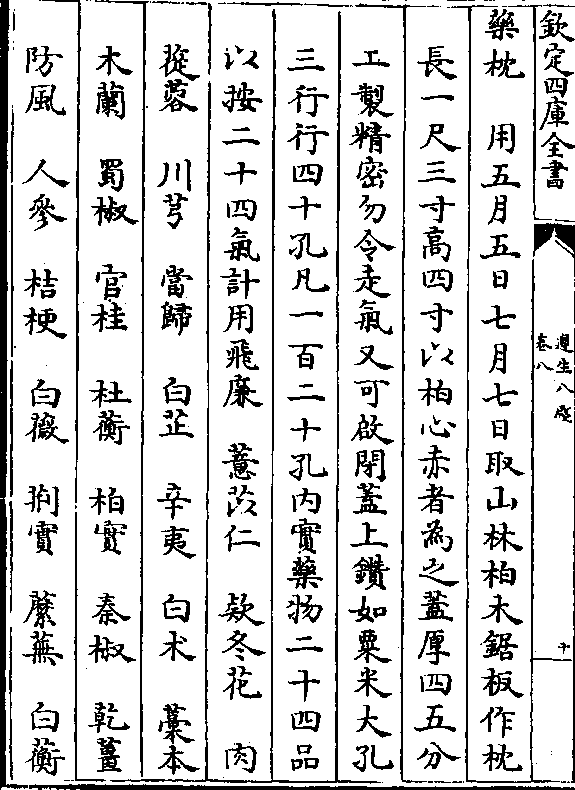 欽定四庫全書
遵生八牋
卷八
十
藥枕　用五月五日七月七日取山林柏木鋸板作枕
長一尺三寸高四寸以柏心赤者為之蓋厚四五分
工製精密勿令走氣又可啟閉蓋上鑽如粟米大孔
三行行四十孔凡一百二十孔内實藥物二十四品
以按二十四氣計用飛廉　薏苡仁　欵冬花　肉
蓯蓉　川芎　當歸　白芷　辛夷　白术　藁本
木蘭　蜀椒　官桂　杜蘅　柏實　秦椒　乾薑
防風　人參　桔梗　白薇　荆實　蘪蕪　白蘅